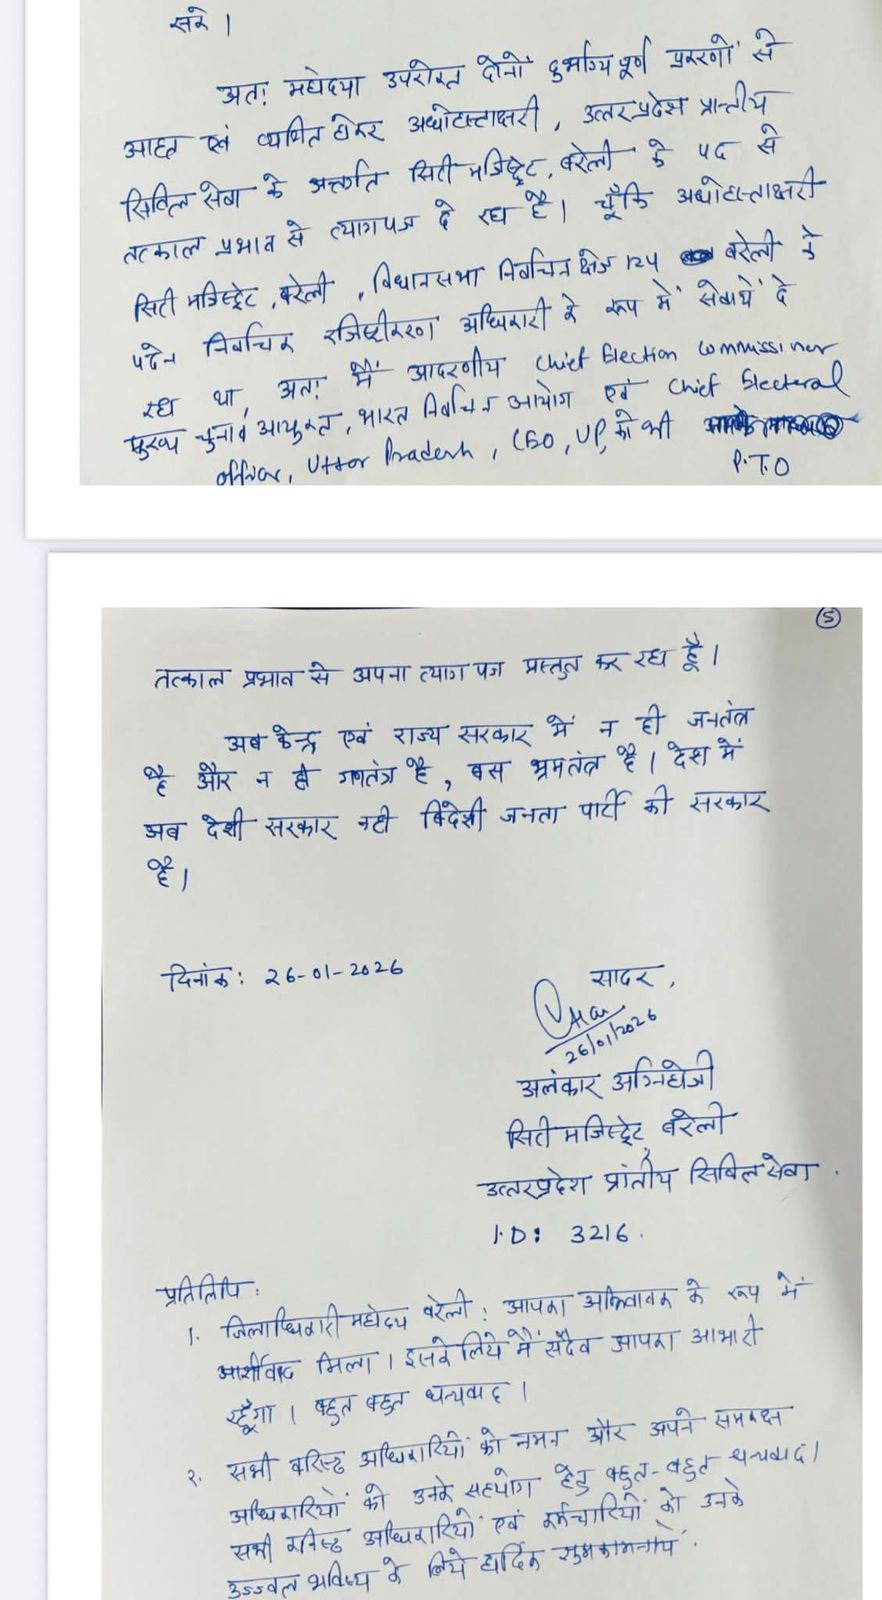 सके।
अतः महोदया उपरोक्त दोनों दुर्भाग्यपूर्ण प्रकरणों से
आहत एवं व्यथित होकर अधोहस्ताक्षरी, उत्तरप्रदेश प्रान्तीय
सिविल सेवा के अन्तर्गत सिटी मजिस्ट्रेट, बरेली के पद से
तत्काल प्रभाव से त्यागपत्र दे रहा है। चूँकि अधोहस्ताक्षरी
सिटी मजिस्ट्रेट, बरेली, विधानसभा निर्वाचन क्षेत्र 124 बरेली के
पदेन निर्वाचक रजिस्ट्रीकरण अधिकारी के रूप में सेवायें दे
रहा था, अतः मैं आदरणीय Chief Election Commissiner
मुख्य चुनाव आयुक्त, भारत निर्वाचन आयोग एवं Chief Electoral
officer, Uttar Pradesh, CEO, UP, को भी
P.T.O
5
तत्काल प्रभाव से अपना त्याग पत्र प्रस्तुत कर रहा हूँ।
अब केन्द्र एवं राज्य सरकार में न ही जनतंत्र
है और न ही गणतंत्र है, बस भ्रमतंत्र है। देश में
अब देशी सरकार नही विदेशी जनता पार्टी की सरकार
है।
दिनांक: 26-01-2026
सादर,
26/01/2026
अलंकार अग्निहोत्री
सिटी मजिस्ट्रेट, बरेली
उत्तरप्रदेश प्रांतीय सिविल सेवा.
I.D: 3216.
प्रतिलिपि:
1. जिलाधिकारी महोदय बरेली: आपका अभिवावक के रूप में
आर्शीवाद मिला। इसके लिये मैं सदैव आपका आभारी
रहूँगा। बहुत बहुत धन्यवाद।
२. सभी वरिष्ठ अधिकारियों को नमन और अपने समकक्ष
अधिकारियों को उनके सहयोग हेतु बहुत-बहुत धन्यवाद।
सभी कनिष्ठ अधिकारियों एवं कर्मचारियों को उनके
उज्ज्वल भविष्य के लिये हार्दिक शुभकामनायें.